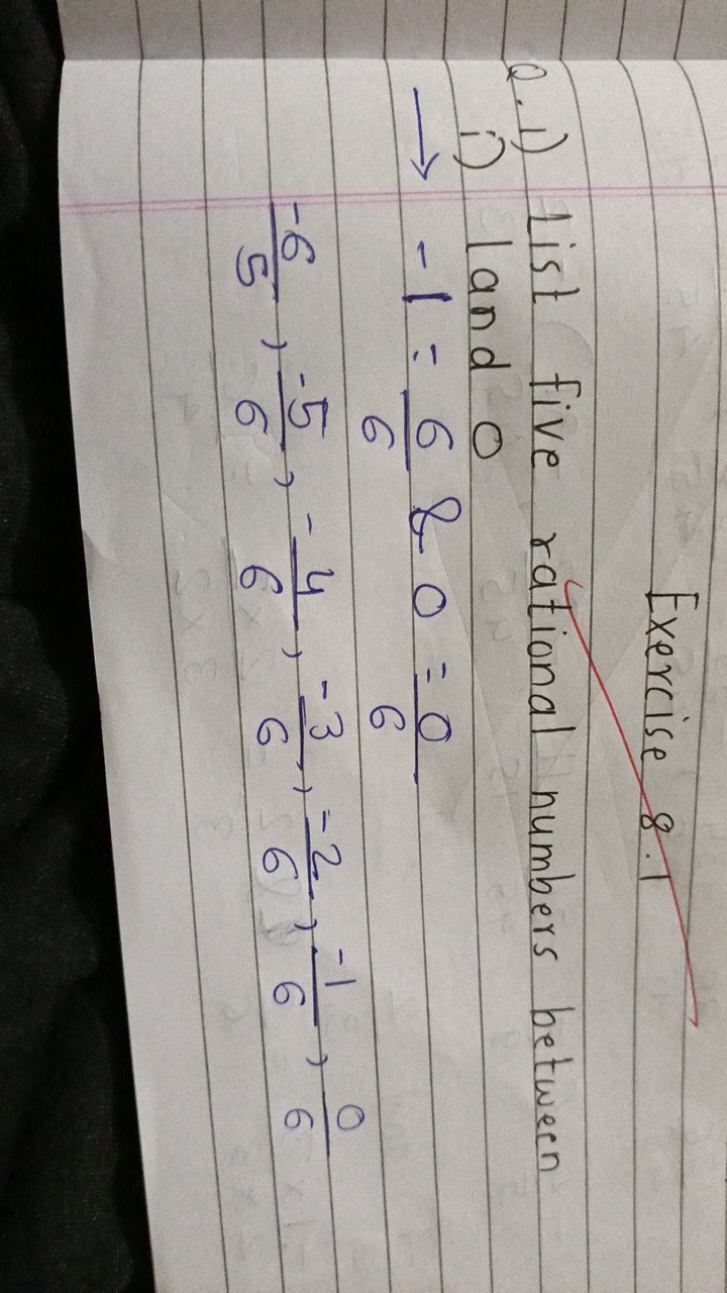 Exercise 8.1
Q.1) List five rational numbers between
i) 1 and 0
→ -1 = 6/6 & 0 = 0/6
-6/5, -5/6, -4/6, -3/6, -2/6, -1/6, 0/6